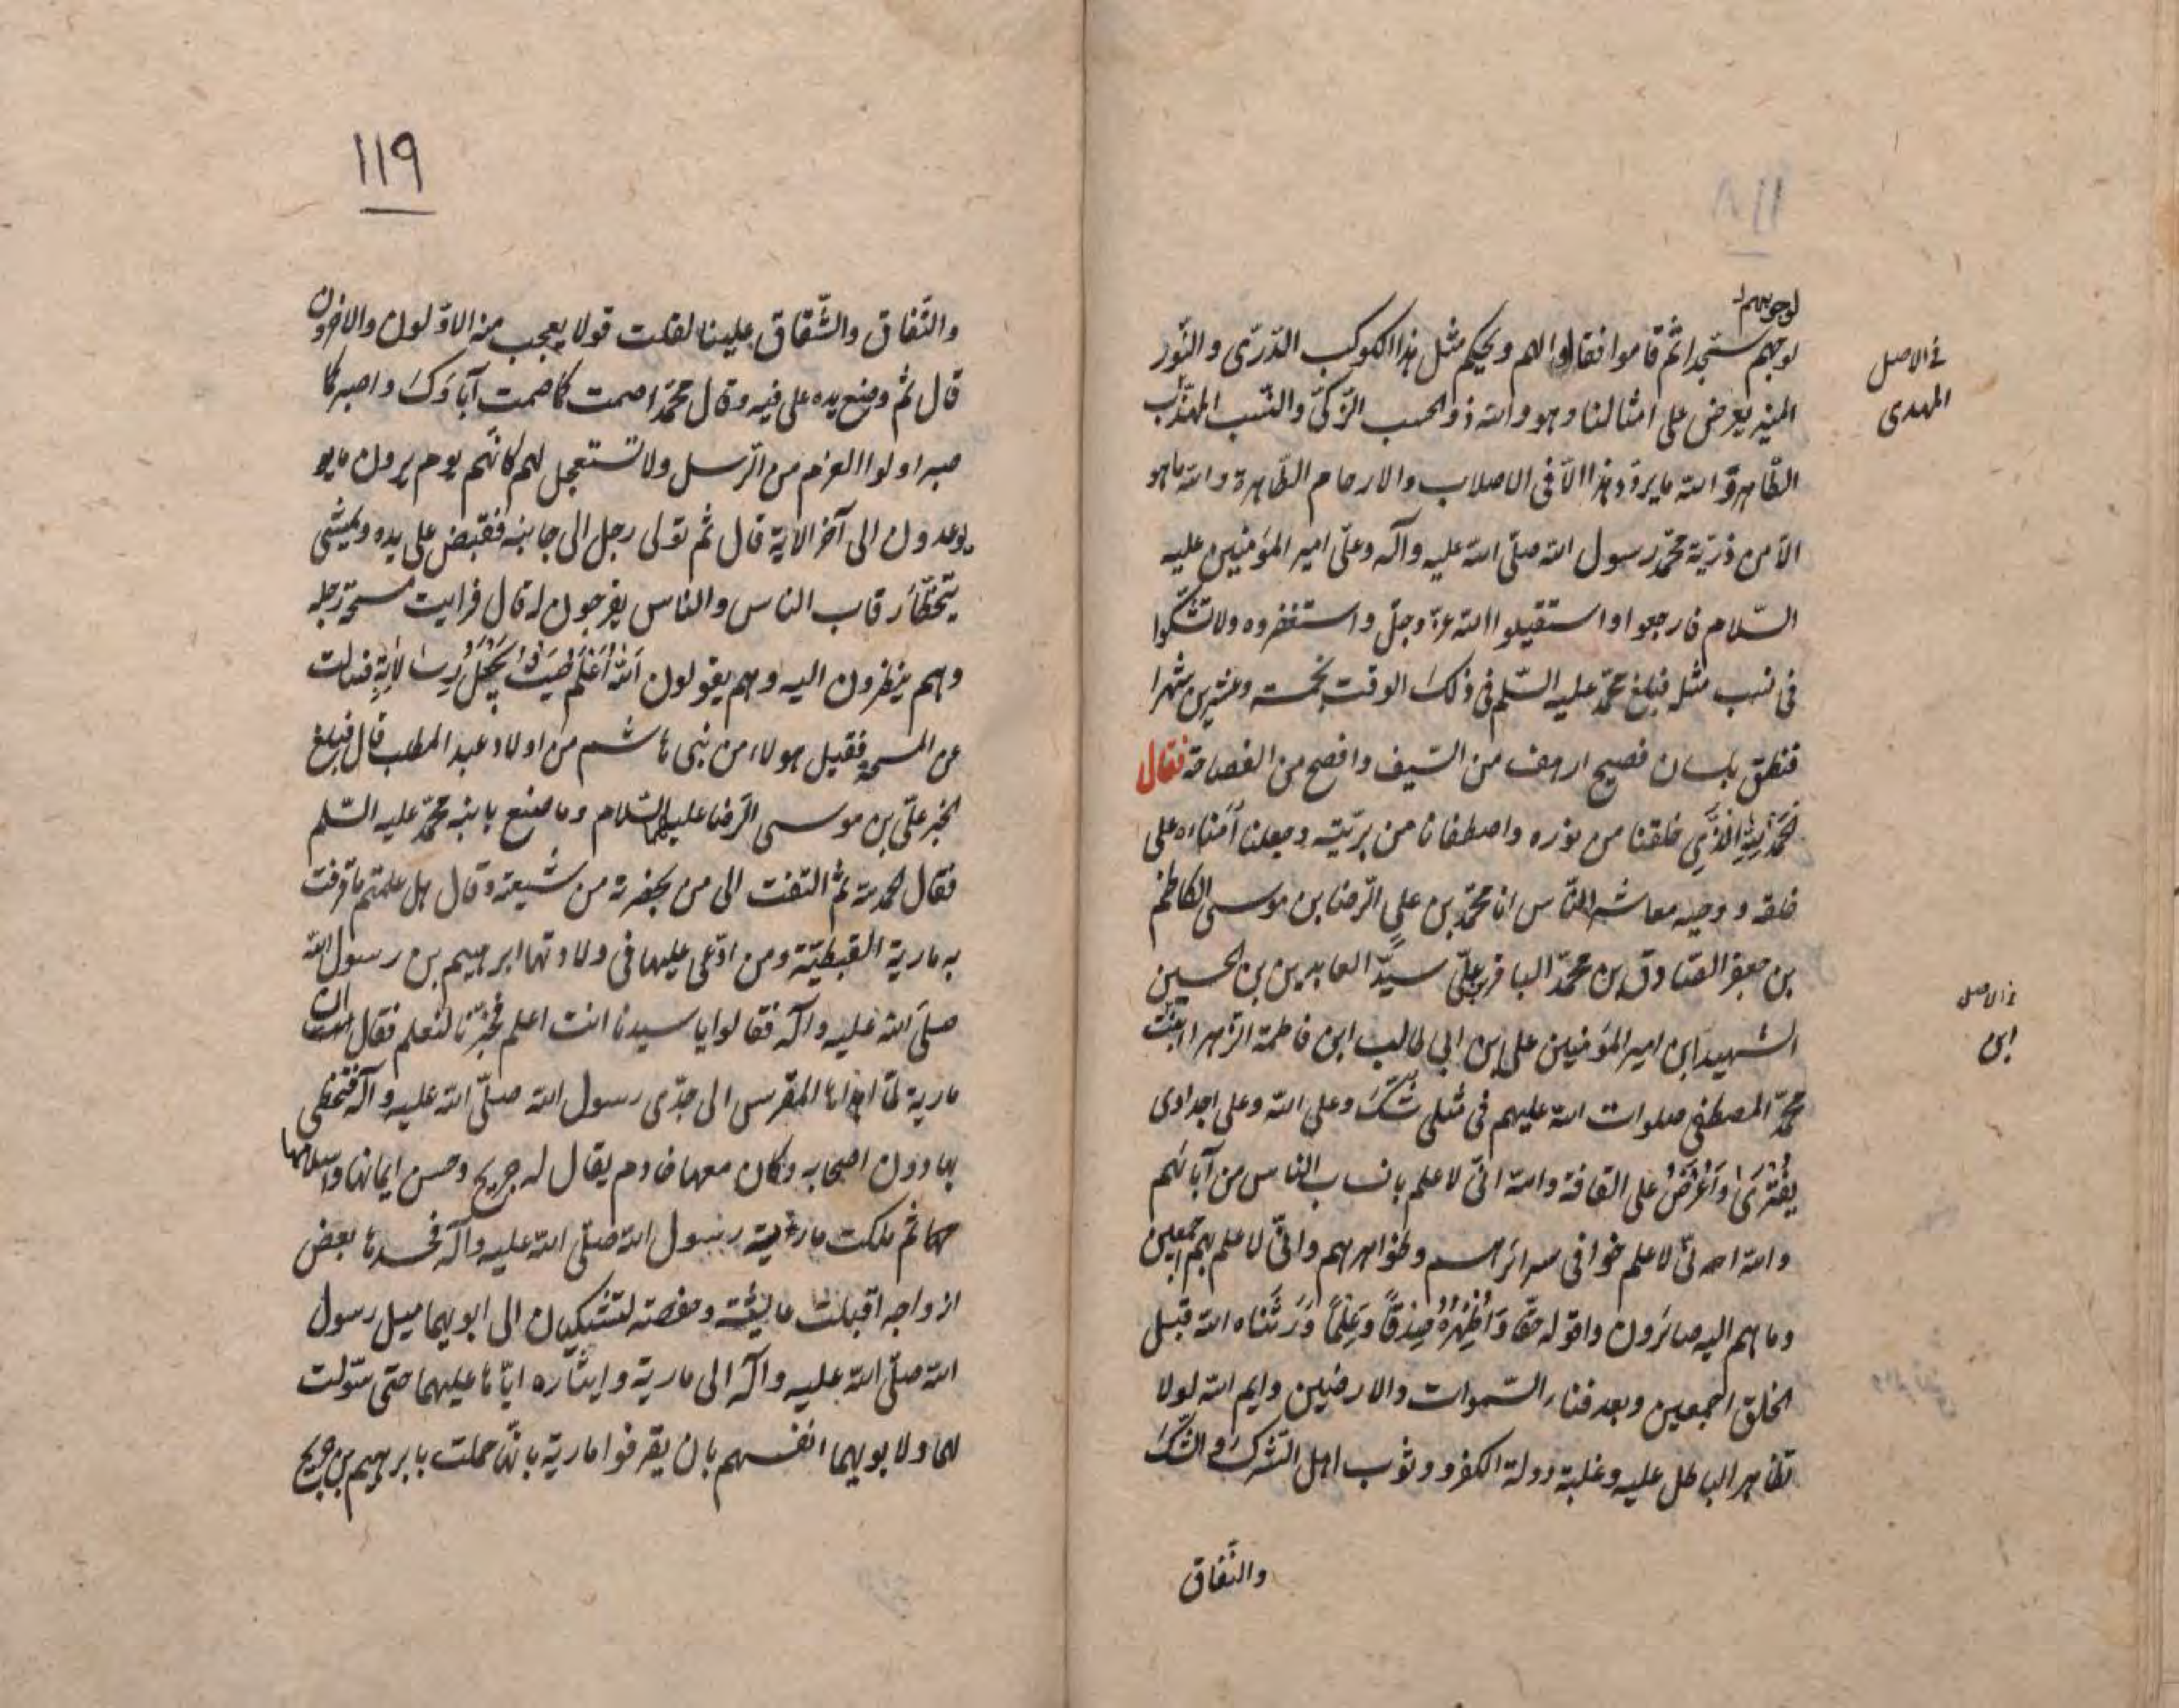 ١١٨
لوجوههم
لوجههم سجدا ثم قاموا فقالوا لهم ويحكم مثل هذا الكوكب الدّرّى والنّور
المنير يعرض على امثالنا وهو والله ذو الحسب الزّكىّ والنّسب المهذّب
الطّاهر والله ما يردّد هذا الّا فى الاصلاب والارحام الطّاهرة والله ما هو
الّا من ذرّية محمّد رسول الله صلّى الله عليه وآله وعلّى امير المؤمنين عليه
السّلام فارجعوا واستقيلوا الله عزّ وجلّ واستغفروه ولا تشكّوا
فى نسب مثل فبلغ محمّد عليه السّلم فى ذلك الوقت بخمسة وعشرين شهرا
فنطق بلسان فصيح ارهف من السّيف وافصح من الفصاحة فقال
الحَمْدُ لِلّهِ الَّذِي خلقنا من نوره واصطفانا من بريّته وجعلنا اُمناءه على
خلقه ووحيه معاشر النّاس انا محمّد بن علي الرّضا بن موسى الكاظم
بن جعفر الصّادق بن محمّد الباقر بن علّى سيّد العابدين بن الحسين
الشهيد ابن امير المؤمنين على بن ابي طالب ابن فاطمة الزّهرا بنت
محمّد المصطفى صلوات الله عليهم فى مثلى شكّ وعلى الله وعلى اجدادى
يُفْتَرَى وَاُعْرَضُ على القافة والله انّى لاعلم بانساب النّاس من آبائهم
والله انّى لاعلم خوافى سرائرهم وظواهرهم وانّى لاعلم بهم اجمعين
وما هم اليه صائرون واقوله حقّا وَاُظْهِرُهُ صِدْقًا وَعِلْمًا وَرَثَناه الله قبل
الخلق اجمعين وبعد فناء السّموات والارضين وايم الله لولا
تظاهر الباطل عليه وغلبة دولة الكفر ووثوب اهل الشّرك والشّكّ
والنّفاق
فى الاصل
المهدى
فى الاصل
ابن
١١٩
والنّفاق والشّقاق علينا لقلت قولا يعجب منه الاوّلون والاخرون
قال ثم وضع يده على فيه وقال محمّد اصمت كما صمت آباؤك واصبر كما
صبر اولوا العزم من الرّسل ولا تستعجل لهم كانّهم يوم يرون ما يو
يوعدون الى آخر الاية قال ثم تولى رجل الى جانبه فقبض على يده ويمشى
يتخطّأ رقاب الناس والناس يفرجون له قال فرايت مسحة رجله
وهم ينظرون اليه وهم يقولون اَللّهُ اَعْلَمُ حَيْثُ يَجْعَلُ رِسالاتِهِ فسالت
عن المسحة فقيل هولاء من بنى هاشم من اولاد عبد المطلب قال فبلغ
الخبر علىّ بن موسى الرّضا عليهما السّلام وما صنع بابنه محمّد عليه السّلم
فقال الحمد لله ثمّ التفت الى من بحضرته من شيعته وقال هل علمتم ما قرفت
به مارية القبطيّة ومن ادّعى عليها فى ولادتها ابرهيم بن رسول الله
صلّى الله عليه وآله فقالوا يا سيدنا انت اعلم فخبّرنا لنعلم فقال ان
مارية لمّا اهداها المقرس الى جدّى رسول الله صلّى الله عليه وآله فتحظى
بها دون اصحابه وكان معها خادم يقال له جريح وحسن ايمانها واسلامها
ثم ملكت مارية رسول الله صلّى الله عليه وآله فحسدها بعض
ازواجه اقبلت عايشة وحفصة لتشتكيان الى ابويهما ميل رسول
الله صلّى الله عليه وآله الى مارية وايثاره ايّاها عليهما حتى سوّلت
لهما ولابويهما انفسهم بان يقرفوا مارية بانّها حملت بابرهيم من جريح